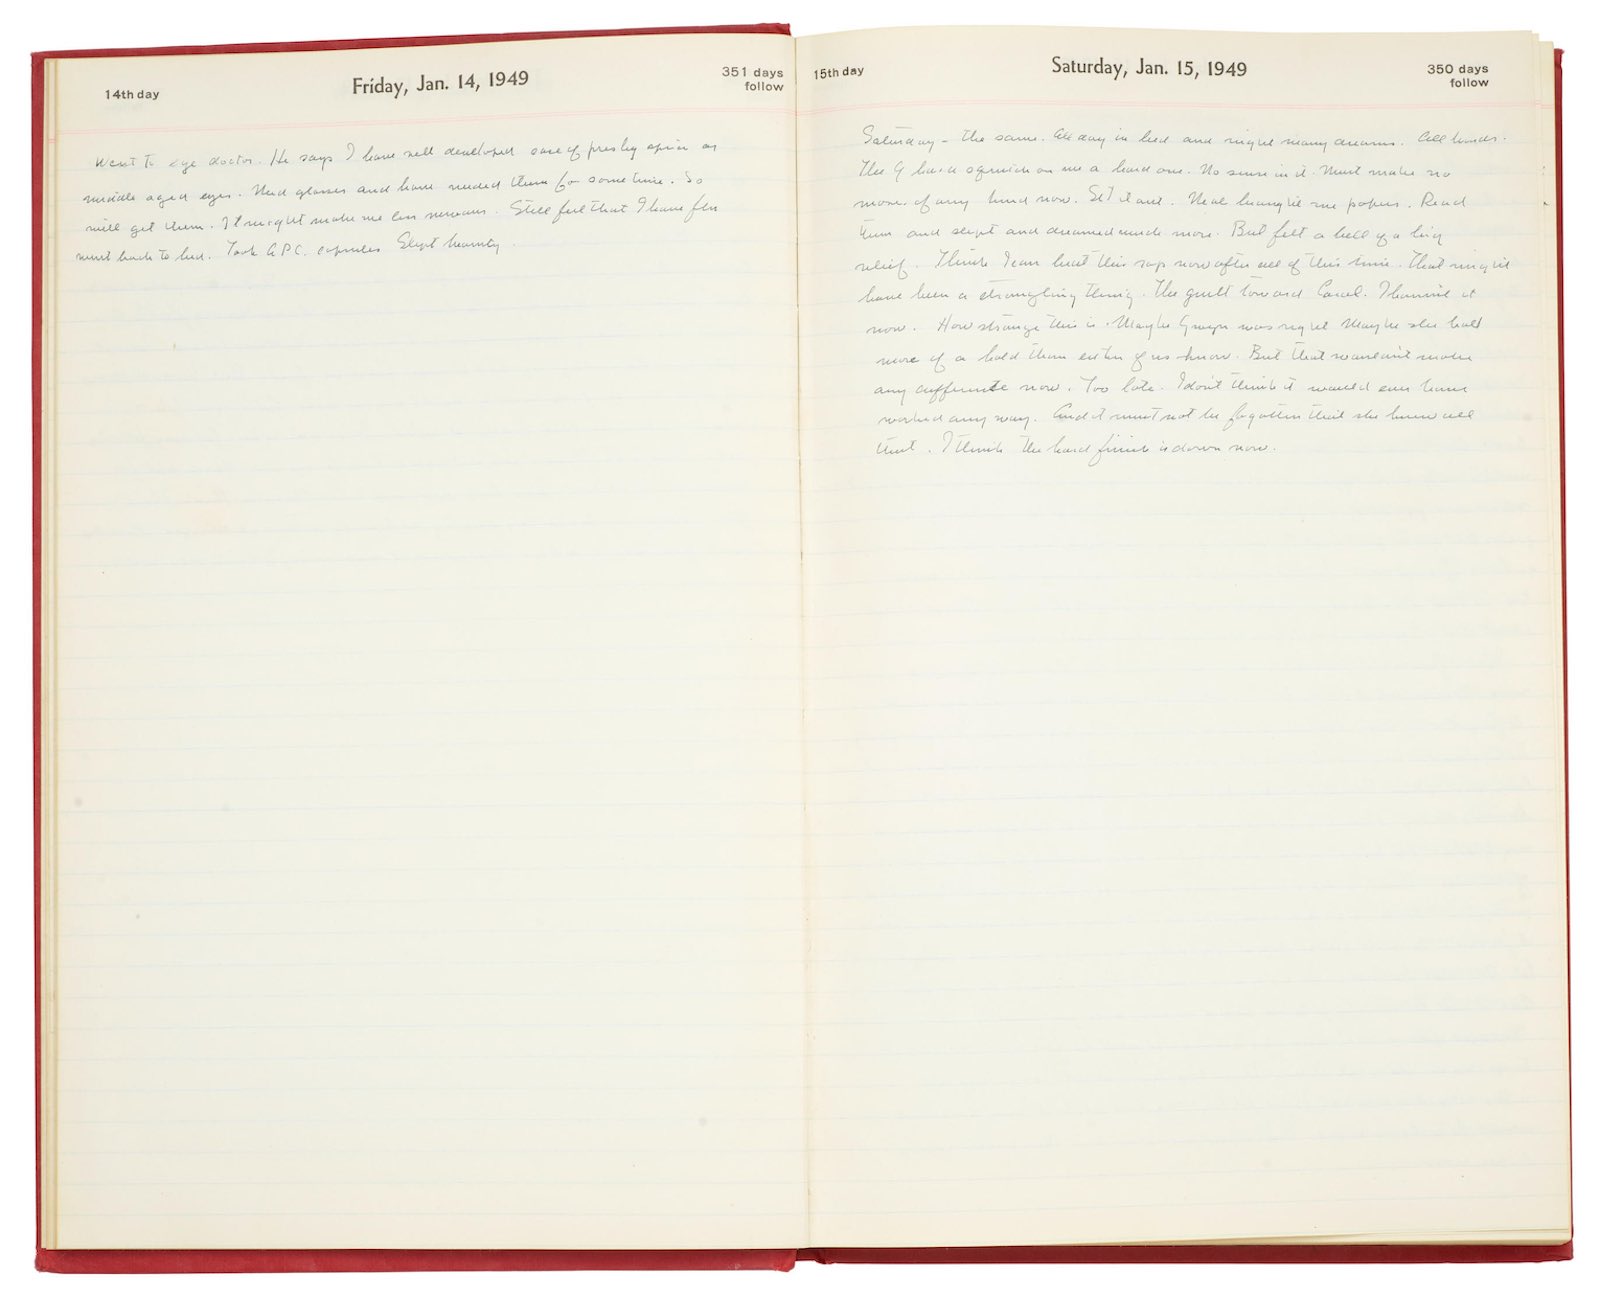 14th day
Friday, Jan. 14, 1949
351 days
follow
Went to eye doctor. He says I have well developed case of presby opia or
middle aged eyes. Need glasses and have needed them for some time. So
will get them. It might make me less nervous. Still feel that I have flu
went back to bed. Took A.P.C. capsules Slept heavily.
15th day
Saturday, Jan. 15, 1949
350 days
follow
Saturday – the same. All day in bed and night many dreams. All kinds.
The G on me a hard one. No sense in it. Must make no
more of any kind now. Set it out. Neal brought me papers. Read
them and slept and dreamed much more. But felt a hell of a big
relief. Think I can beat this rap now after all of this time. That might
have been a strangling thing. The guilt toward Carol. I haven't it
now. How strange this is. Maybe Gwyn was right Maybe she had
more of a hold than either of us know. But that wouldn't make
any difference now. Too late. I don't think it would ever have
worked any way. And it must not be forgotten that she knew all
that. I think the hard finish is down now.